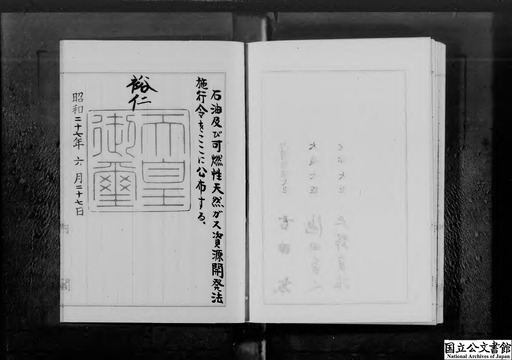 石油及び可燃性天然ガス資源開発法
施行令をここに公布する。
裕仁
天皇
御璽
昭和二十七年六月二十七日
国立公文書館
National Archives of Japan